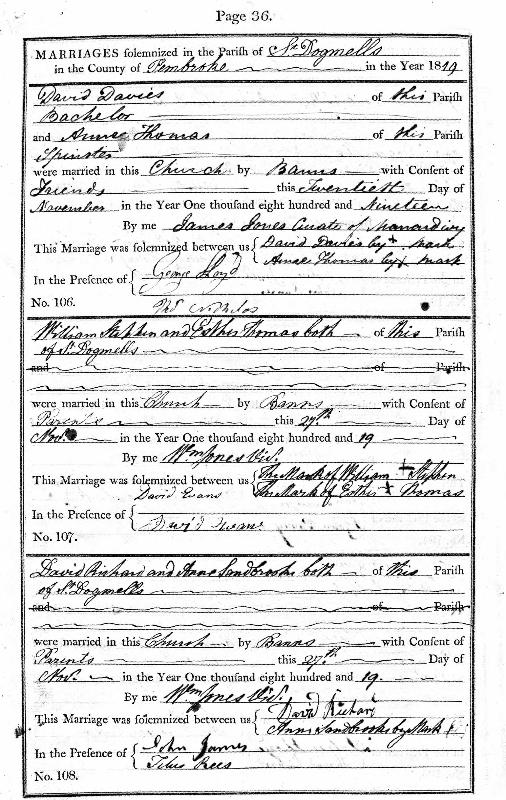 Page 36.
MARRIAGES solemnized in the Parish of St. Dogmells
in the County of Pembroke in the Year 1819
David Davies of this Parish
Bachelor
and Anne Thomas of this Parish
Spinster
were married in this Church by Banns with Consent of
Friends this Twentieth Day of
November in the Year One thousand eight hundred and Nineteen
By me James Jones Curate of Manardivy
This Marriage was solemnized between us David Davies by + mark
Anne Thomas by + mark
In the Presence of George Lloyd
No. 106.
William Stephen and Esther Thomas both of this Parish
of St. Dogmells
and of Parish
were married in this Church by Banns with Consent of
Parents this 27th Day of
Nov. in the Year One thousand eight hundred and 19
By me Wm Jones Vic.
This Marriage was solemnized between us The Mark of William + Stephen
David Evans The Mark of Esther + Thomas
In the Presence of
David Evans
No. 107.
David Richard and Anne Sandbrooke both of this Parish
of St. Dogmells
and of Parish
were married in this Church by Banns with Consent of
Parents this 27th Day of
Nov. in the Year One thousand eight hundred and 19.
By me Wm Jones Vic.
This Marriage was solemnized between us David Richard
Anne Sandbrooke by Mark +
In the Presence of John James
Titus Rees
No. 108.